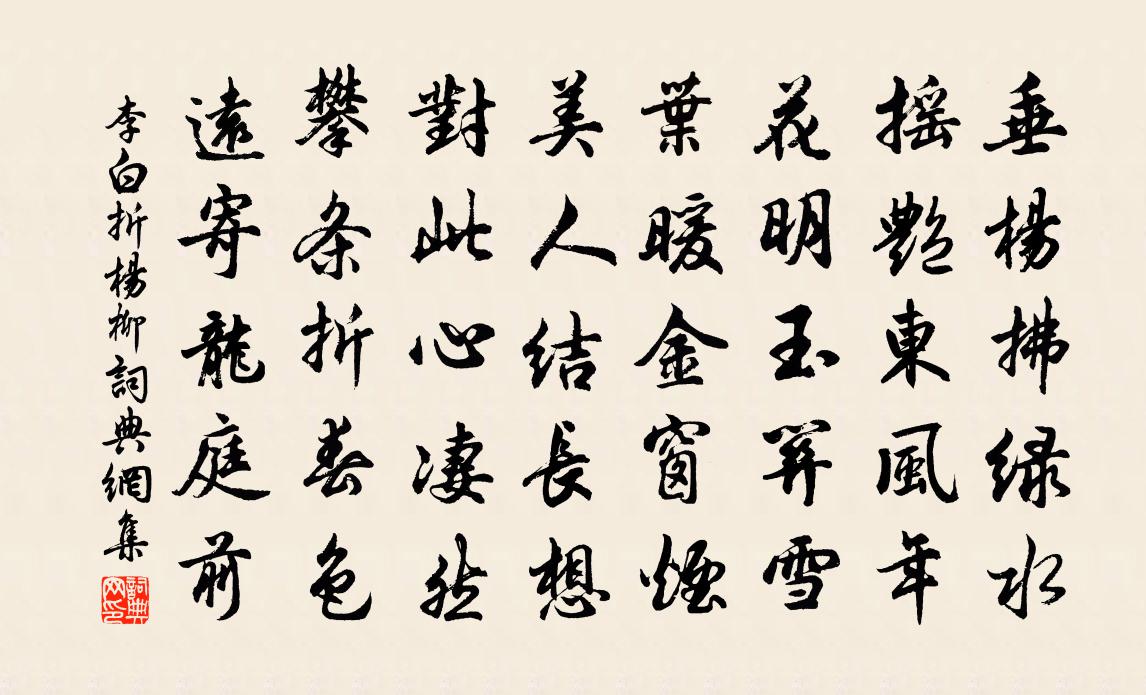 垂楊拂緑水
揺艷東風年
花明玉關雪
葉暖金窗煙
美人結長想
對此心凄然
攀条折春色
遠寄龍庭前
李白折楊柳詞典網集
詞典網印